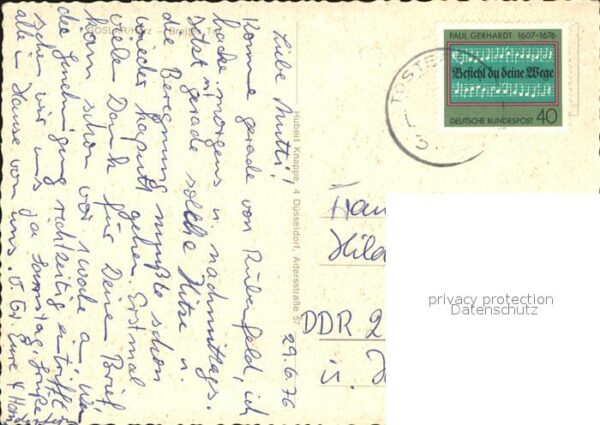 GOSLAR/Harz - Breites Tor
29.6.76
Liebe Mutti!
Komme gerade vom Rübenfeld, ich
hacke morgens u. nachmittags.
Ist gerade solche Hitze u.
die Beregnung mußte schon
wieder kaputt gehen. Erstmal
vielen Dank für Deine Brief
kam schon vor 1 Woche an. Wenn
die Genehmigung rechtzeitig eintrifft
sehen wir uns ja Samstag. Grüße
alle zu Hause von uns.
Hubert Knappe, 4 Düsseldorf, Adersstraße 57
PAUL GERHARDT 1607-1676
Befiehl du deine Wege
DEUTSCHE BUNDESPOST 40
TOSTE
Frau
Hild
DDR 2
u. H
privacy protection
Datenschutz